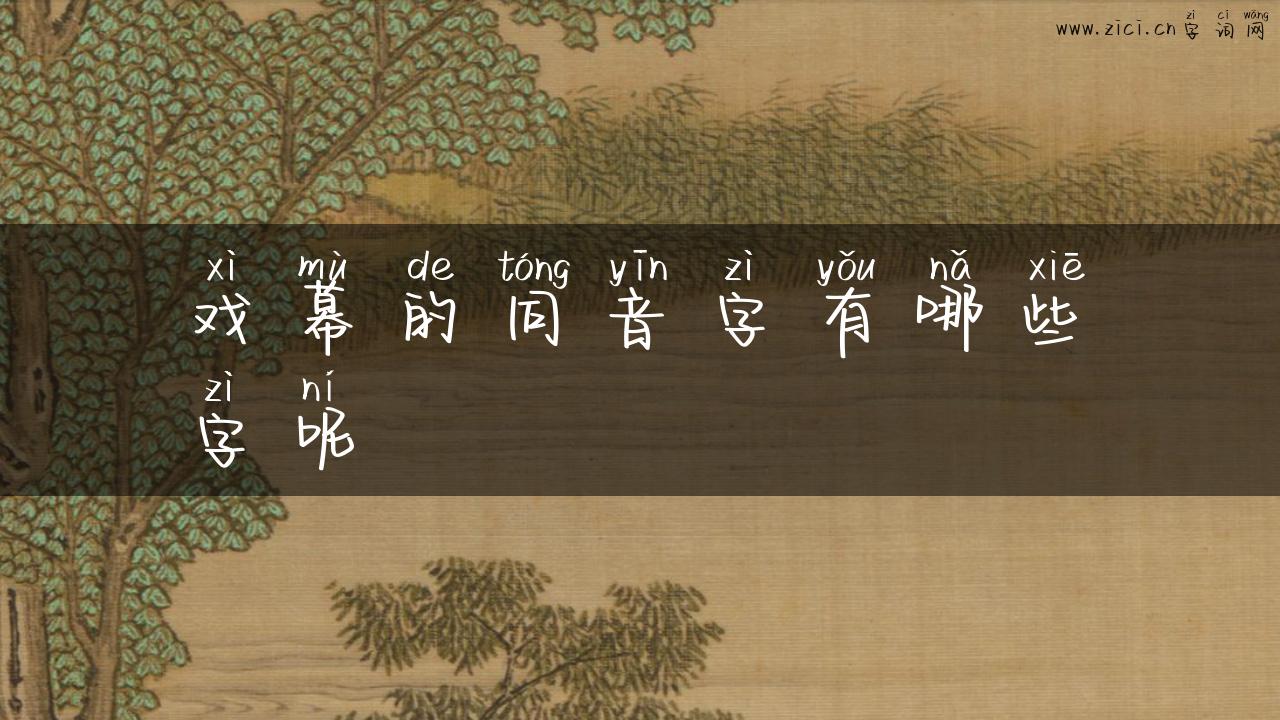 zì cí wǎng
www.zici.cn字词网
xì mù de tóng yīn zì yǒu nǎ xiē
戏幕的同音字有哪些
zì ní
字呢